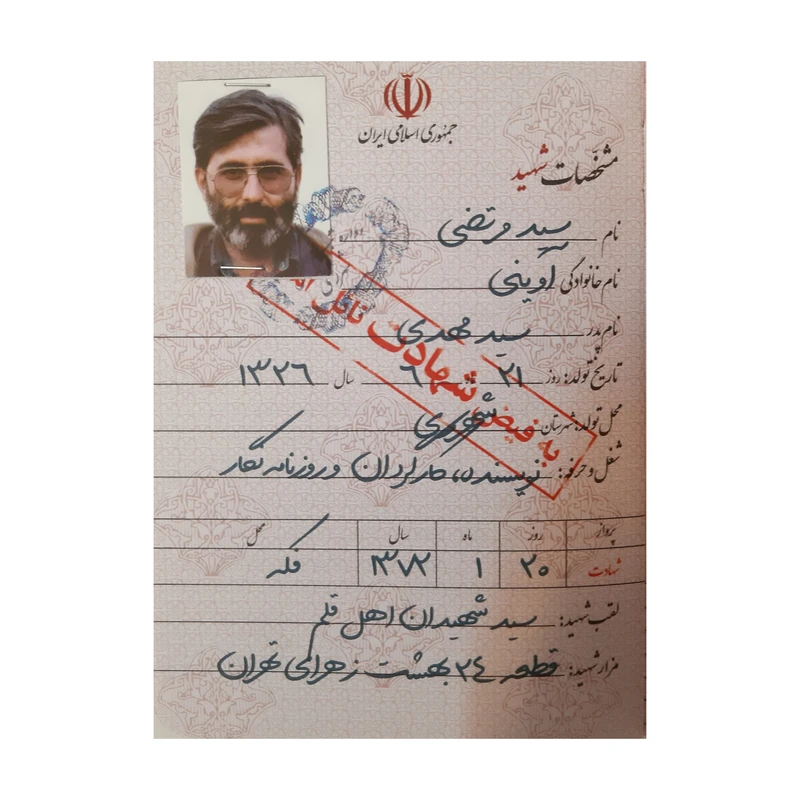 جمهوری اسلامی ایران
مشخصات شهید
نام سید مرتضی
نام خانوادگی آوینی
نام پدر سید مهدی
تاریخ تولد: روز ۲۱ ماه ۶ سال ۱۳۲۶
محل تولد: شهرستان شهرری
شغل و حرفه: نویسنده، کارگردان و روزنامه نگار
به فیض شهادت نائل
پرواز روز ماه سال محل
شهادت ۲۰ ۱ ۱۳۷۲ فکه
لقب شهید: سید شهیدان اهل قلم
مزار شهید: قطعه ۲۴ بهشت زهرای تهران